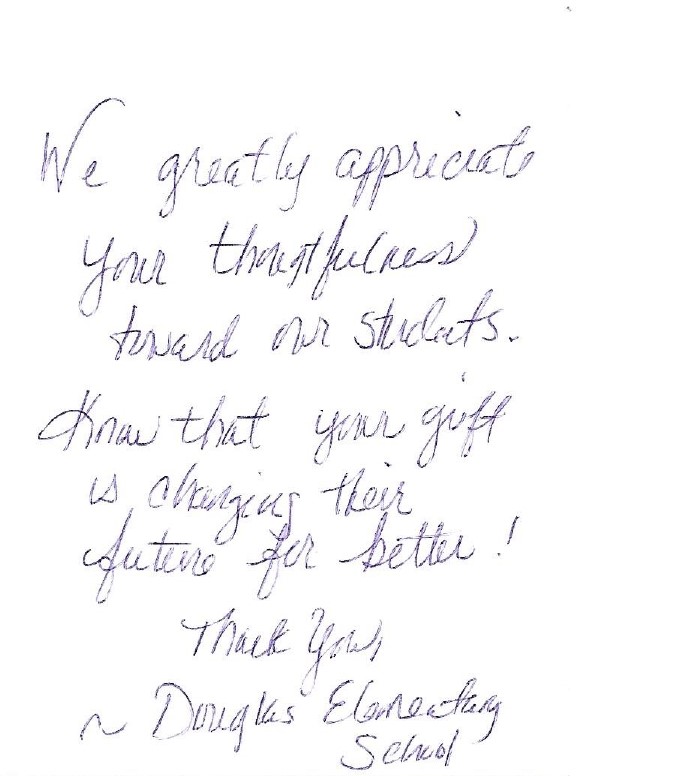 We greatly appreciate
your thoughtfulness
toward our students.
Know that your gift
is changing their
future for better!
Thank You,
~ Douglas Elementary
School